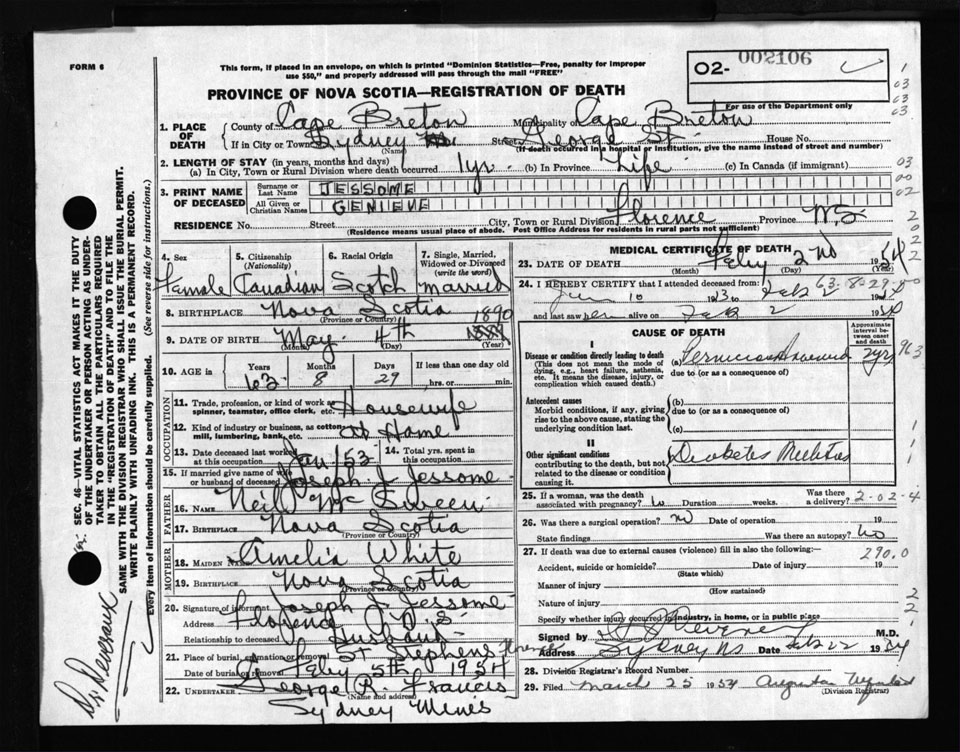 FORM 6
This form, if placed in an envelope, on which is printed "Dominion Statistics—Free, penalty for improper
use $50," and properly addressed will pass through the mail "FREE"
PROVINCE OF NOVA SCOTIA—REGISTRATION OF DEATH
O2- 002106
For use of the Department only
1. PLACE OF DEATH
County of Cape Breton Municipality of Cape Breton
If in City or Town Sydney Street George St. House No.
(Name) (If death occurred in a hospital or institution, give the name instead of street and number)
2. LENGTH OF STAY (in years, months and days)
(a) In City, Town or Rural Division where death occurred 1yr. (b) In Province Life (c) In Canada (if immigrant)
3. PRINT NAME OF DECEASED
Surname or Last Name JESSOME
All Given or Christian Names GENIEVE
RESIDENCE No. Street City, Town or Rural Division Florence Province N.S.
(Residence means usual place of abode. Post Office Address for residents in rural parts not sufficient)
4. Sex Female
5. Citizenship (Nationality) Canadian
6. Racial Origin Scotch
7. Single, Married, Widowed or Divorced (write the word) married
8. BIRTHPLACE Nova Scotia
(Province or Country)
9. DATE OF BIRTH May 4th 1890
(Month) (Day) (Year)
10. AGE in Years 63 Months 8 Days 29 If less than one day old hrs. or min.
OCCUPATION
11. Trade, profession, or kind of work as spinner, teamster, office clerk, etc. Housewife
12. Kind of industry or business, as cotton mill, lumbering, bank, etc. at Home
13. Date deceased last worked at this occupation Jan 1953 14. Total yrs. spent in this occupation
15. If married give name of wife or husband of deceased Joseph J. Jessome
FATHER
16. Name Neil Mc Sween
17. Birthplace Nova Scotia
(Province or Country)
MOTHER
18. Maiden Name Amelia White
19. Birthplace Nova Scotia
(Province or Country)
20. Signature of informant Joseph J. Jessome
Address Florence N.S.
Relationship to deceased Husband
21. Place of burial, cremation or removal St Stephens
Date of burial or removal Feby 5th 1954
22. UNDERTAKER George R. Francis
(Name and address)
Sydney Mines
MEDICAL CERTIFICATE OF DEATH
23. DATE OF DEATH Feby 2nd 1954
(Month) (Day) (Year)
24. I HEREBY CERTIFY that I attended deceased from:
Jan 10 1953 to Feb 2 63-8-29
and last saw her alive on Feb 2 19
CAUSE OF DEATH
Approximate interval between onset and death
I
Disease or condition directly leading to death
(This does not mean the mode of dying, e.g., heart failure, asthenia, etc. It means the disease, injury, or complication which caused death.)
(a) Pernicious Anaemia 2yrs
due to (or as a consequence of)
Antecedent causes
Morbid conditions, if any, giving rise to the above cause, stating the underlying condition last.
(b)
due to (or as a consequence of)
(c)
II
Other significant conditions
contributing to the death, but not related to the disease or condition causing it.
Diabetes Mellitus
25. If a woman, was the death associated with pregnancy? no Duration weeks. Was there a delivery? 2-02-4
26. Was there a surgical operation? no Date of operation 19
State findings Was there an autopsy? no
27. If death was due to external causes (violence) fill in also the following:—
290.0
Accident, suicide or homicide? Date of injury 19
(State which)
Manner of injury
(How sustained)
Nature of injury
Specify whether injury occurred in industry, in home, or in public place
Signed by M.D.
Address Sydney NS Date Feb 22 1954
28. Division Registrar's Record Number
29. Filed march 25 1954
(Division Registrar)
SEC. 46—VITAL STATISTICS ACT MAKES IT THE DUTY
OF THE UNDERTAKER OR PERSON ACTING AS UNDER-
TAKER TO OBTAIN ALL THE PARTICULARS REQUIRED
IN THE "REGISTRATION OF DEATH" AND TO FILE THE
SAME WITH THE DIVISION REGISTRAR WHO SHALL ISSUE THE BURIAL PERMIT.
WRITE PLAINLY WITH UNFADING INK. THIS IS A PERMANENT RECORD.
Every item of information should be carefully supplied. (See reverse side for instructions.)
Dr Devereaux